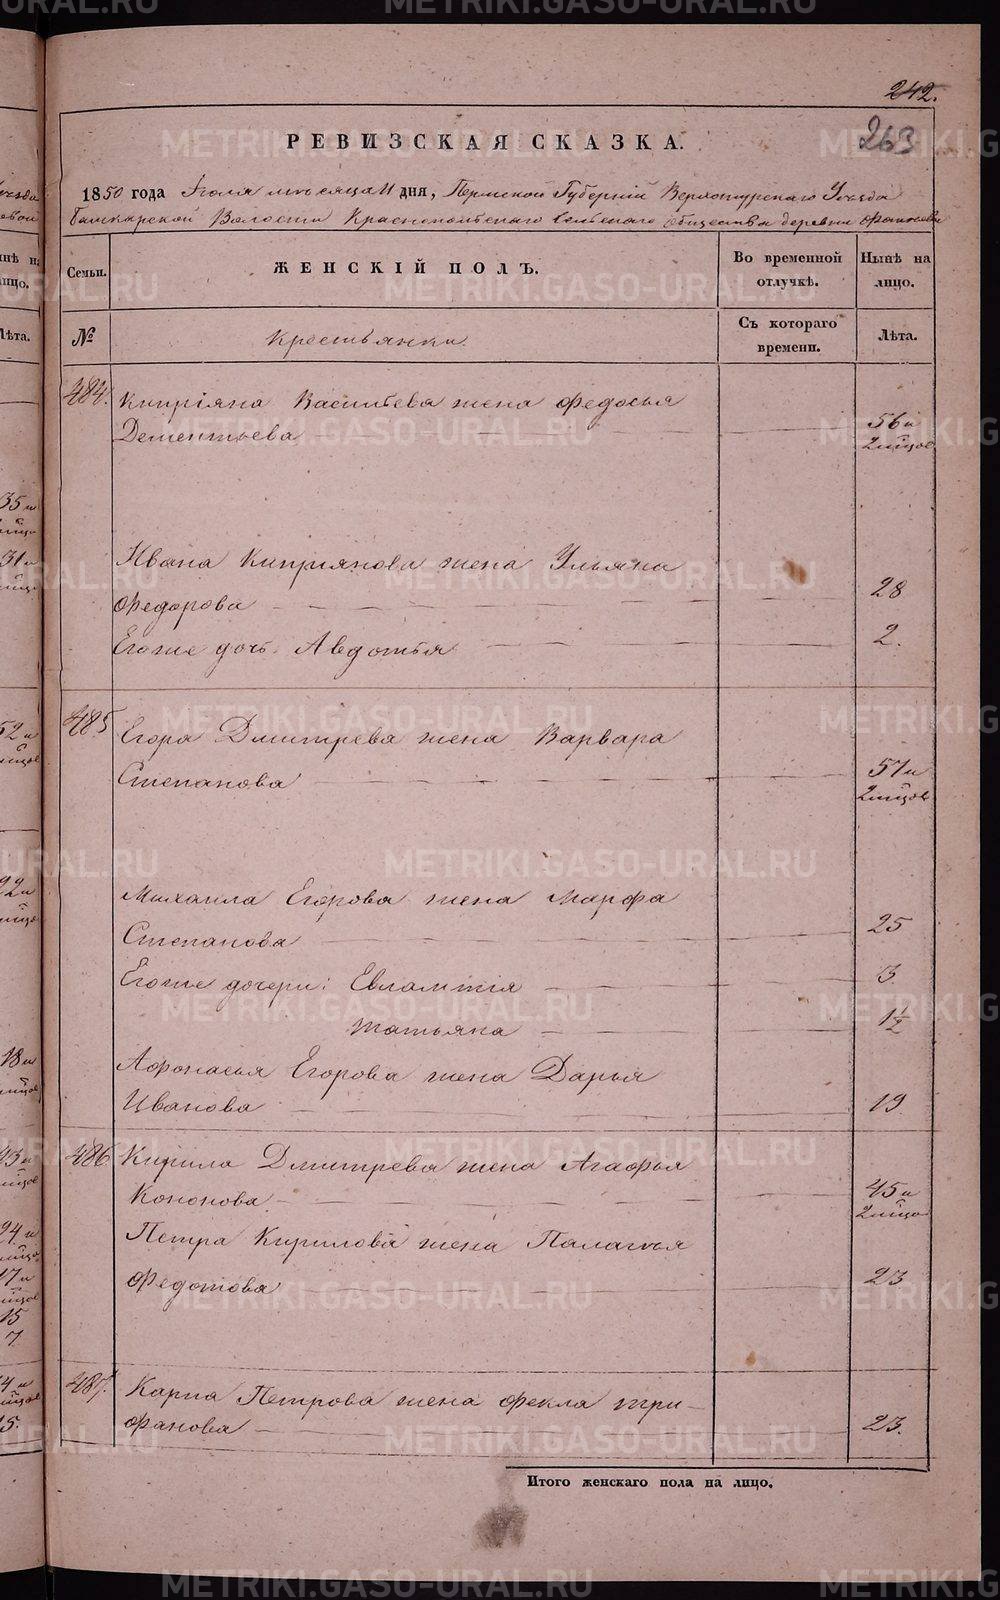 242.
263
РЕВИЗСКАЯ СКАЗКА.
1850 года Іюля мѣсяца 11 дня, Пермской Губерніи Верхотурскаго Уѣзда
Башкарской Волости Краснопольскаго сельскаго общества деревни
Семьи.
ЖЕНСКІЙ ПОЛЪ.
Во временной отлучкѣ.
Нынѣ на лицо.
№
Крестьянки.
Съ котораго времени.
Лѣта.
484. Кипріяна Васильева жена Федосья
Дементьева 56 и
2 мѣцов
Ивана Киприянова жена Ульяна
Федорова 28
Егоже дочь Авдотья 2.
485 Егора Дмитрева жена Варвара
Степанова 51 и
2 мѣцов
Михаила Егорова жена Марфа
Степанова 25
Егоже дочери: Евлампія 3.
Татьяна 1½
Афонасья Егорова жена Дарья
Иванова 19
486 Кирила Дмитрева жена Агафья
Кононова 45 и
2 мѣцо
Петра Кирилова жена Палагья
Федотова 23
487. Карпа Петрова жена Фекла Три-
фанова 23.
Итого женскаго пола на лицо.
METRIKI.GASO-URAL.RU